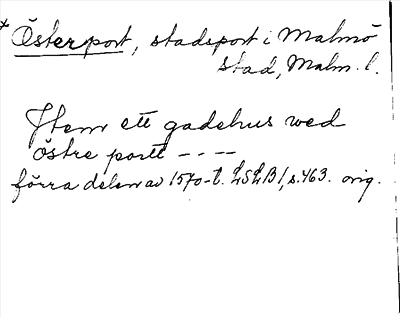 × Österport, stadsport i Malmö
stad, Malm. l.
Item ett gadehus wed
östre portt - - - -
förra delen av 1570-t. LSLB 1, s. 463. orig.